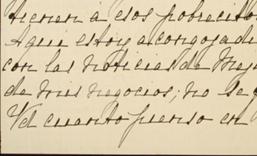 tienen a esos pobrecito
Aqui estoy acongojad
con las noticias de Mej
de mis negocios; no se q
Vd cuanto pienso en